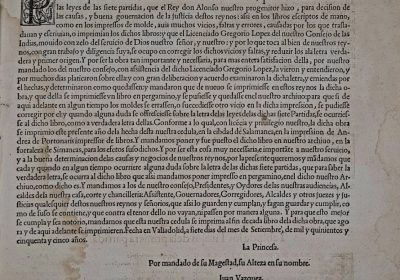 las leyes de las siete partidas, que el Rey don Alonso nuestro progenitor hizo, para decision
de las causas, y buena gouernacion de la justicia destos reynos: assi en los libros scriptos de mano,
como en los impressos de molde, aula muchos vicios, faltas y errores, causados por los que trasla
dauan y escriuian, o imprimian los dichos libros: y que el Licenciado Gregorio Lopez del nuestro Consejo de las
Indias, mouido con zelo del seruicio de Dios nuestro señor, y nuestro: y por lo que toca al bien de nuestros rey-
nos, con gran trabajo y diligencia suya, se ocupo en corregir los dichos vicios y faltas, y reduzir las al a letra verda
dera y primer origen. Y por ser la obra tan importante y necessaria, para mas entera satisfacion della, por nuestro
mandado los del nuestro consejo, con assistencia del dicho Licenciado Gregorio Lopez, la vieron y emendaron, y
por muchos dias platicaron sobre ella: y con gran deliberacion y acuerdo examinaron la dicha letra, y emiendas por
el hechas, y determinaron como quedassen: y mandaron que de nueuo se imprimiesse en estos reynos la dicha o-
bra, y se escriuiesse vn libro en pergamino, y se pusiesse y quedasse en el nuestro archiuo para que si de
aqui adelante en algun tiempo los moldes se errassen, o sucediesse otro vicio en la dicha impression, se pudiesse
corregir por el: y quando alguna duda se offreciesse sobre la letra de las leyes delas dichas siete Partidas, se occurries
se al dicho libro, como a verdadera letra dellas. Conforme a lo qual, con licencia y priuilegio nuestro, la dicha obra
se imprimio este presente año de la hecha desta nuestra cedula, en la ciudad de Salamanca, en la impression de An
drea de Portonaris impressor de libros. Y mandamos poner y fue puesto el dicho libro en nuestro archiuo, en la
fortaleza de Simancas, para los effectos suso dichos. Y por ser esta cosa muy necessaria, e importante a nuestro seruicio,
y a la buena determinacion delas causas y negocios de nuestros reynos, por la presente queremos y mandamos que
cada y quando en algun tiempo ocurriere alguna duda sobre la letra de las dichas siete partidas, que para saber la
verdadera letra, se ocurra al dicho libro que assi mandamos poner impresso en pergamino, en el dicho nuestro ar-
chiuo, como dicho es. Y mandamos a los de nuestro consejo, Presidentes, y Oydores de las nuestras audiencias, Al
caldes de la nuestra casa, corte y chancillerias, Assistente, Gouernadores, Corregidores, Alcaldes y otros juezes y ju-
sticias qualesquier destos nuestros reynos y señorios, que assi lo guarden y cumplan, y fagan guardar, y cumplir, co
mo de suso se contiene, y que contra el tenor dello no vayan, ni passen por alguna manera. Y para que esto mejor
se cumpla y sea notorio, mandamos que esta nuestra cedula se imprima al fin de cada libro dela dicha obra, que ago-
ra y de aqui adelante se imprimieren. Fecha en Valladolid, a siete dias del mes de Setiembre, de mil y quinientos y
cinquenta y cinco años.
La Princesa.
Por mandado de su Magestad, su Alteza en su nombre.
Iuan Vazquez.